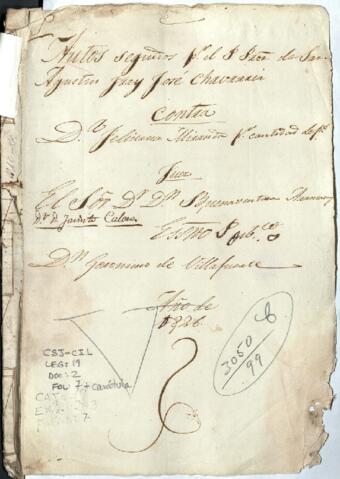 Autos seguidos pr. el P. Prior de San
Agustin Fray José Chavarria
Contra
Miranda pr. cantidad de ps.
Juez
El Señor Dr. Dn. Buenaventura
Dr. D. Jacinto Calero
Essno Pubco
Dn. Geronimo de Villafuerte
Año de
1826
CSJ-CIL
LEG: 19
DOC: 2
FOL 7 + carátula
3050
99